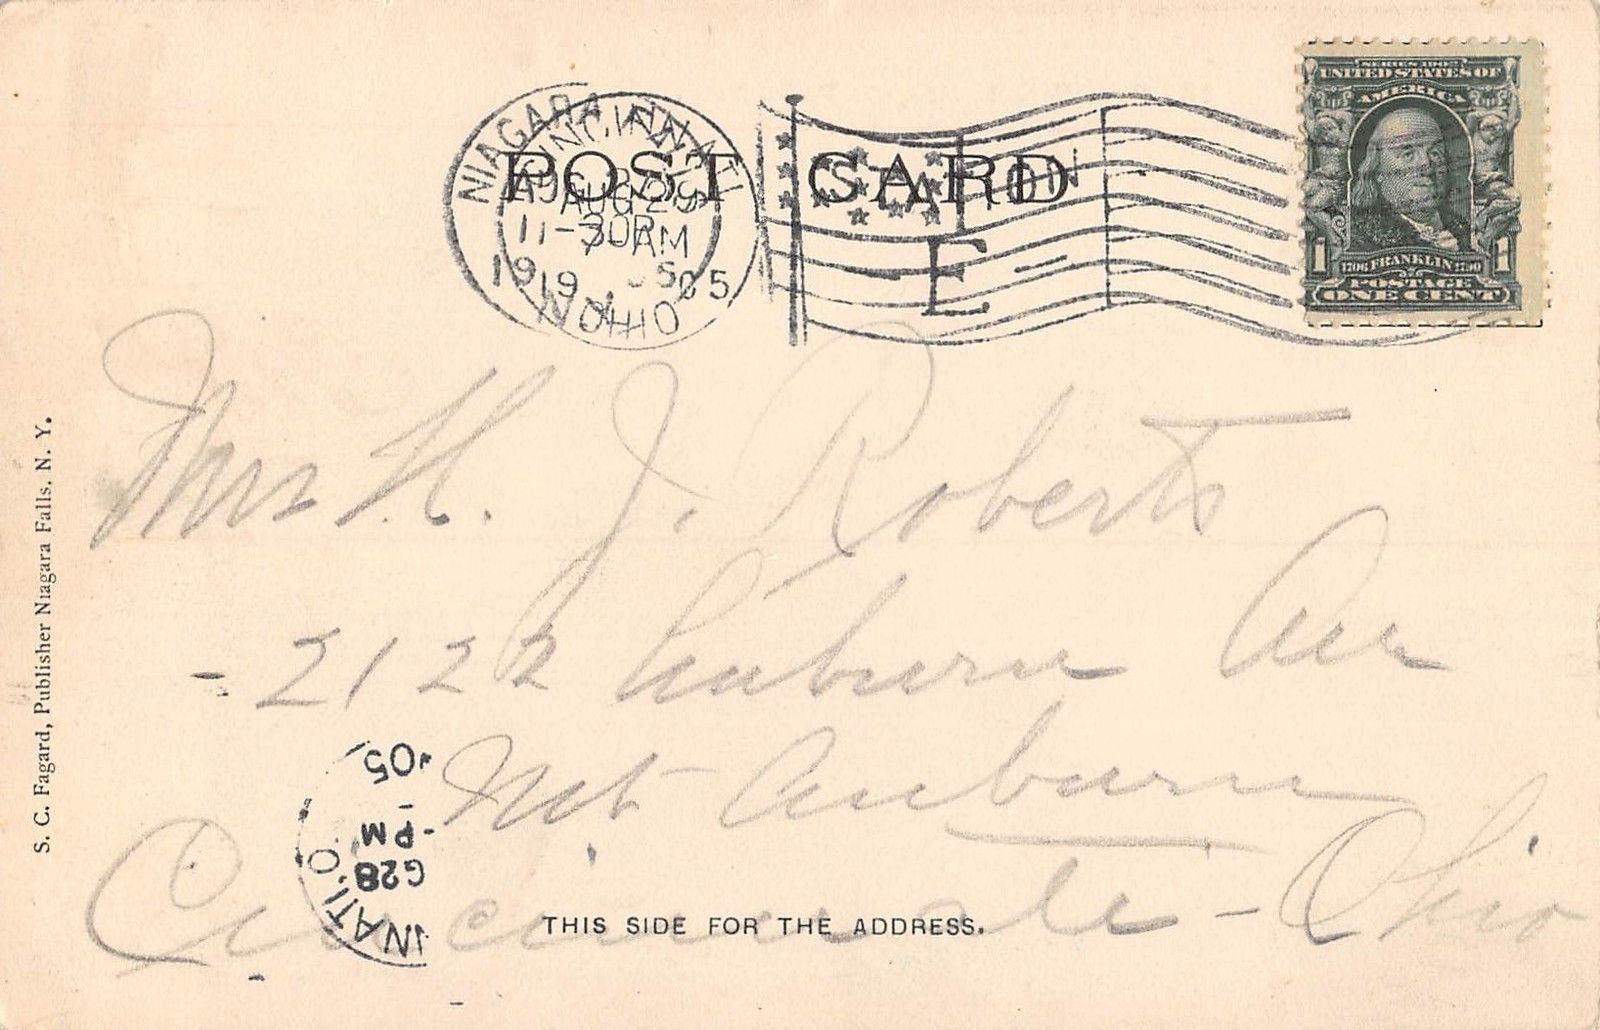 POST CARD
NIAGARA
CINCINNATI
AUG 29
11-30P
7-AM
1905
OHIO
STATION
E
SERIES 1902
UNITED STATES OF
AMERICA
1 1706 FRANKLIN 1790 1
POSTAGE
ONE CENT
Mrs H. J. Roberts
2122 Auburn Ave
Mt Auburn
Cincinnati - Ohio
THIS SIDE FOR THE ADDRESS.
'05
-PM
G28
NATI, O.
S. C. Fagard, Publisher Niagara Falls. N. Y.